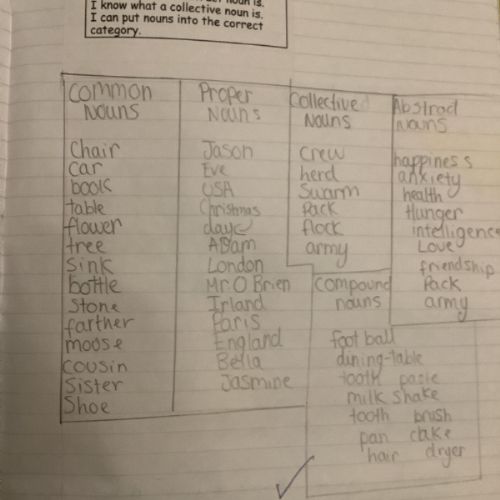 I know what a collective noun is.
I can put nouns into the correct
category.
Common
Nouns
Chair
car
book
table
flower
tree
Sink
bottle
Stone
farther
moose
cousin
Sister
Shoe
Proper
Nouns
Jason
Eve
USA
Christmas
day
Adam
London
Mr. O Brien
Irland
Paris
England
Bella
Jasmine
Collective
Nouns
crew
herd
Swarm
Pack
flock
army
Abstract
Nouns
happiness
anxiety
health
Hunger
intelligence
Love
friendship
Pack
army
Compound
nouns
foot ball
dining-table
tooth paste
milk shake
tooth brush
pan cake
hair dryer